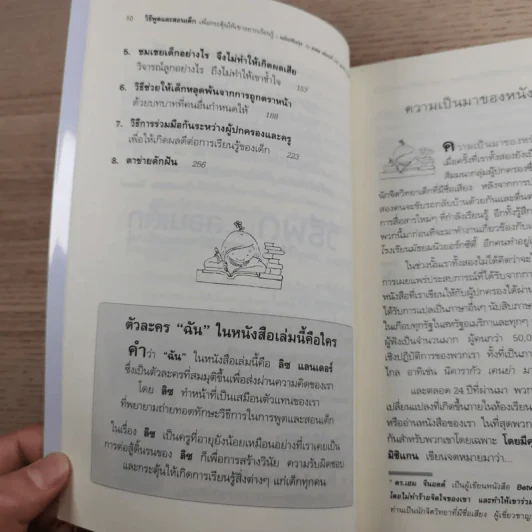 10 วิธีพูดและสอนเด็ก เพื่อกระตุ้นให้เขาอยากเรียนรู้
5. ชมเชยเด็กอย่างไร จึงไม่ทำให้เกิดผลเสีย
วิจารณ์ลูกอย่างไร ถึงไม่ทำให้เขาช้ำใจ 157
6. วิธีช่วยให้เด็กหลุดพ้นจากการถูกตราหน้า
ด้วยบทบาทที่คนอื่นกำหนดให้ 188
7. วิธีการร่วมมือกันระหว่างผู้ปกครองและครู
เพื่อให้เกิดผลดีต่อการเรียนรู้ของเด็ก 223
8. ตาข่ายดักฝัน 256
ตัวละคร “ฉัน” ในหนังสือเล่มนี้คือใคร
คำว่า “ฉัน” ในหนังสือเล่มนี้คือ ลิซ แลนเดอร์
ซึ่งเป็นตัวละครที่สมมุติขึ้นเพื่อส่งผ่านความคิดของเรา
โดย ลิซ ทำหน้าที่เป็นเสมือนตัวแทนของเรา
ที่พยายามถ่ายทอดทักษะวิธีการในการพูดและสอนเด็ก
ในเรื่อง ลิซ เป็นครูที่อายุยังน้อยเหมือนอย่างที่เราเคยเป็น
การต่อสู้ดิ้นรนของ ลิซ ก็เพื่อการสร้างวินัย ความรับผิดชอบ
และกระตุ้นให้เกิดการเรียนรู้สิ่งต่างๆ แก่เด็กทุกคน
ความเป็นมาของหนัง
ความเป็นมาของหนัง
เมื่อครั้งที่เราทั้งสองยังเป็
สัมมนากลุ่มผู้ปกครองซึ่
นักจิตวิทยาเด็กที่มีชื่อเสียง หลังจากการป
สองคนจะขับรถกลับบ้านด้วยกันและตื่นเต
การสื่อสารใหม่ๆ ที่กำลังเรียนรู้ อีกทั้งรู้สึก
พวกนี้มาก่อนที่จะมาทำงานเกี่ยวข้องกับเด
โรงเรียนมัธยมนิวยอร์กซิตี้ อีกคนทำอยู่
ในช่วงนั้นเราทั้งสองไม่ได้คิดว่าจะ
การเผยแพร่ประสบการณ์ที่ได้รับจากการ
หนังสือที่เราเขียนให้กับผู้ปกครองได้ผ่าน
ได้รับการแปลเป็นภาษาอื่นๆ นับสิบภาษ
ในเกือบทุกรัฐในสหรัฐอเมริกาและทุกๆ
ผู้ฟังเป็นจำนวนมาก ผู้คนกว่า 50,0
เชิงปฏิบัติการของพวกเรา ทั้งที่เป็นกา
ไกล อาทิเช่น นิคารากัว เคนย่า มา
และตลอด 24 ปีที่ผ่านมา พวก
เปลี่ยนแปลงที่เกิดขึ้นภายในห้องเรียน
หรืออ่านหนังสือของเรา ในที่สุดพวก
กันสำหรับพวกเขาโดยเฉพาะ โดยมีคุ
มิชิแกน เขียนจดหมายมาว่า...
* ดร.เฮม จีนอตต์ เป็นผู้เขียนหนังสือ Betw
โดยไม่ทำร้ายจิตใจของเขา และทำให้เขาร่วม
ท่านเป็นนักจิตวิทยาที่มีชื่อเสียง ผู้เชี่ยวชาญ